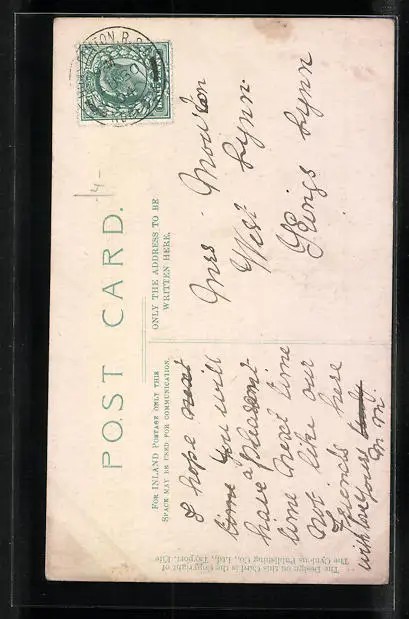 POST CARD.
FOR INLAND POSTAGE ONLY THIS
SPACE MAY BE USED FOR COMMUNICATION.
ONLY THE ADDRESS TO BE
WRITTEN HERE.
I hope next
time you will
have a pleasant
time next time
Not like our
Friends here
with love yours
M. M.
Mrs Mouton
West Lynn.
Kings Lynn
The Design on this Card is the Copyright of
The Cynicus Publishing Co., Ltd., Tayport, Fife
14-